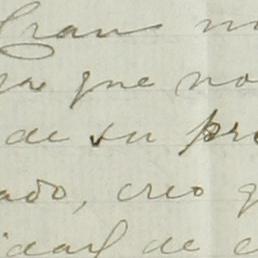 Gran no
ra que no
de su pre
ado, creo q
idad de c